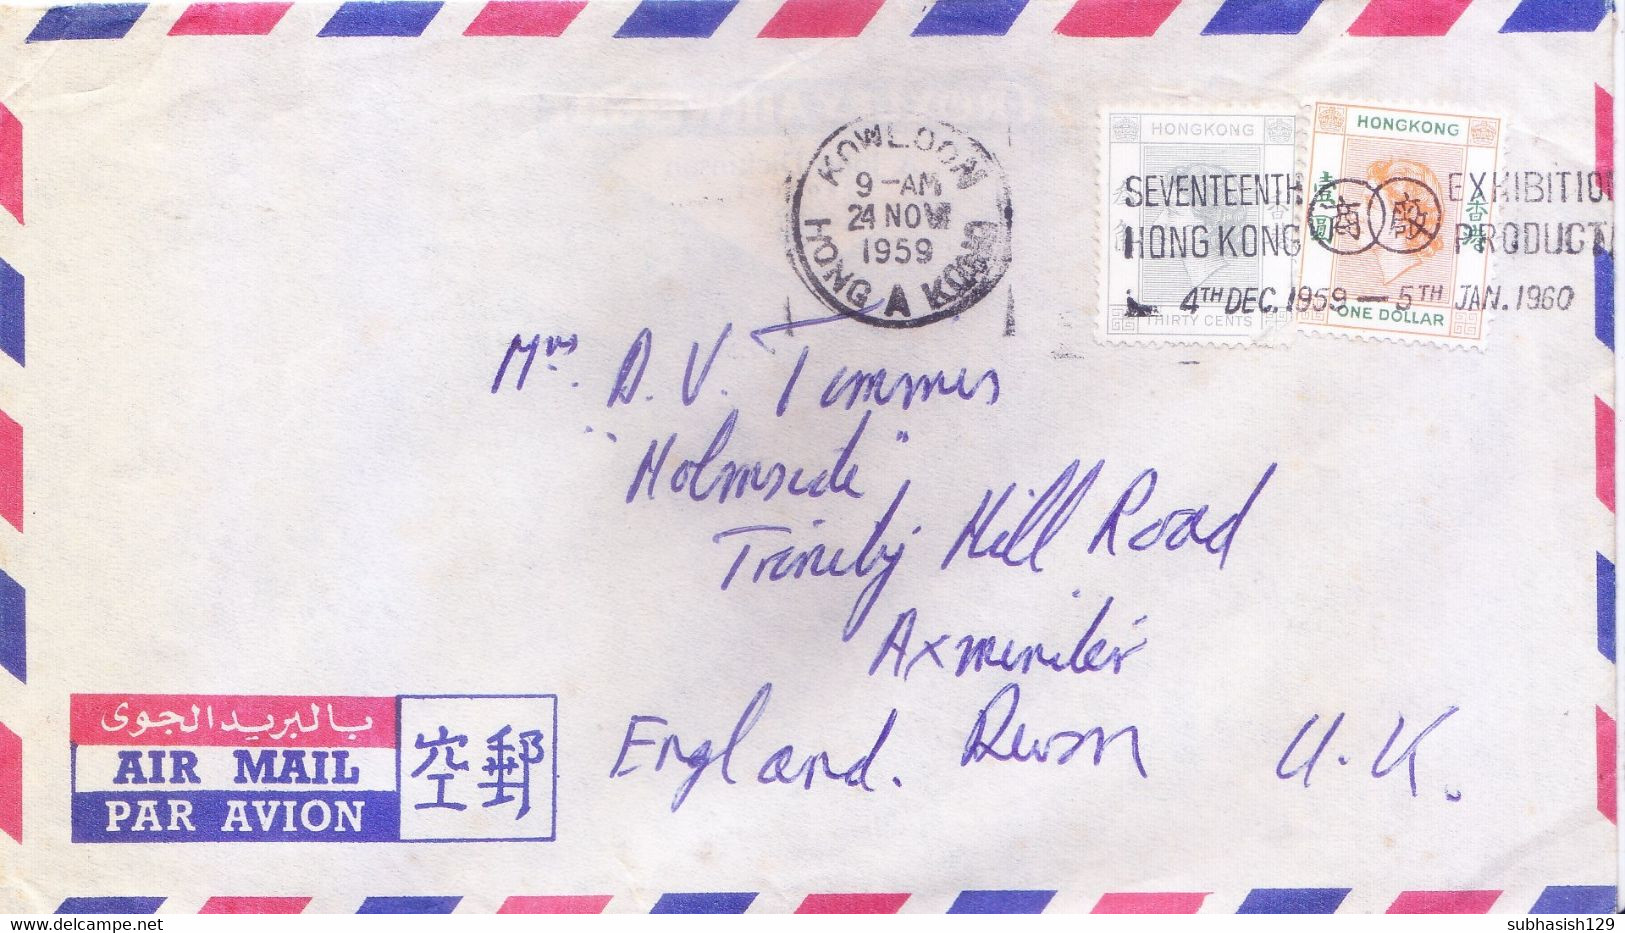 KOWLOON
9-AM
24 NOV
1959
HONG A KONG
HONGKONG
THIRTY CENTS
HONGKONG
壹圓
香港
ONE DOLLAR
SEVENTEENTH 商 廠 EXHIBITION
HONG KONG PRODUCTS
4TH DEC. 1959 — 5TH JAN. 1960
Mrs. D. V. Timmis
"Holmside",
Trinity Hill Road
Axminster
England. Devon U.K.
بالبريد الجوى
AIR MAIL
PAR AVION
空郵
subhasish129